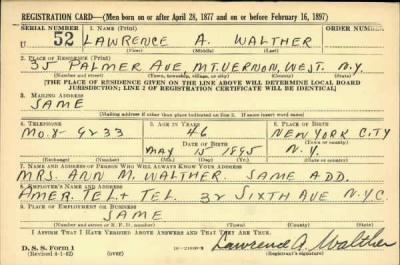 REGISTRATION CARD—(Men born on or after April 28, 1877 and on or before February 16, 1897)
SERIAL NUMBER 1. NAME (Print) ORDER NUMBER
U 52 LAWRENCE A. WALTHER
(First) (Middle) (Last)
2. PLACE OF RESIDENCE (Print)
35 PALMER AVE, MT. VERNON, WEST. N.Y.
(Number and street) (Town, township, village, or city) (County) (State)
[THE PLACE OF RESIDENCE GIVEN ON THE LINE ABOVE WILL DETERMINE LOCAL BOARD
JURISDICTION; LINE 2 OF REGISTRATION CERTIFICATE WILL BE IDENTICAL]
3. MAILING ADDRESS
SAME
[Mailing address if other than place indicated on line 2. If same insert word same]
4. TELEPHONE 5. AGE IN YEARS 6. PLACE OF BIRTH
MO.8- 9233 46 NEW YORK CITY
DATE OF BIRTH (Town or county)
MAY 15 1895 N.Y.
(Exchange) (Number) (Mo.) (Day) (Yr.) (State or country)
7. NAME AND ADDRESS OF PERSON WHO WILL ALWAYS KNOW YOUR ADDRESS
MRS. ANN M. WALTHER. SAME ADD.
8. EMPLOYER'S NAME AND ADDRESS
AMER. TEL + TEL. 32 SIXTH AVE N.Y.C.
9. PLACE OF EMPLOYMENT OR BUSINESS
SAME
(Number and street or R. F. D. number) (Town) (County) (State)
I AFFIRM THAT I HAVE VERIFIED ABOVE ANSWERS AND THAT THEY ARE TRUE.
D. S. S. Form 1
(Revised 4-1-42) (over)
Lawrence A. Walther
(Registrant's signature)